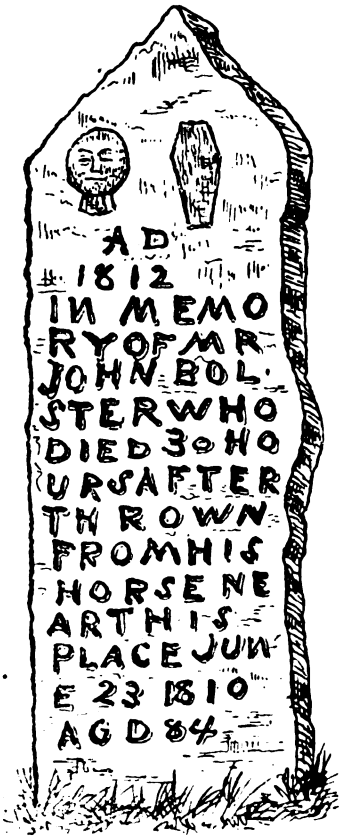 AD
1812
IN MEMO
RY OF MR
JOHN BOL.
STER WHO
DIED 30 HO
URSAFTER
THROWN
FROMHIS
HORSE NE
ARTHIS
PLACE JUN
E 23 1810
AGD 84